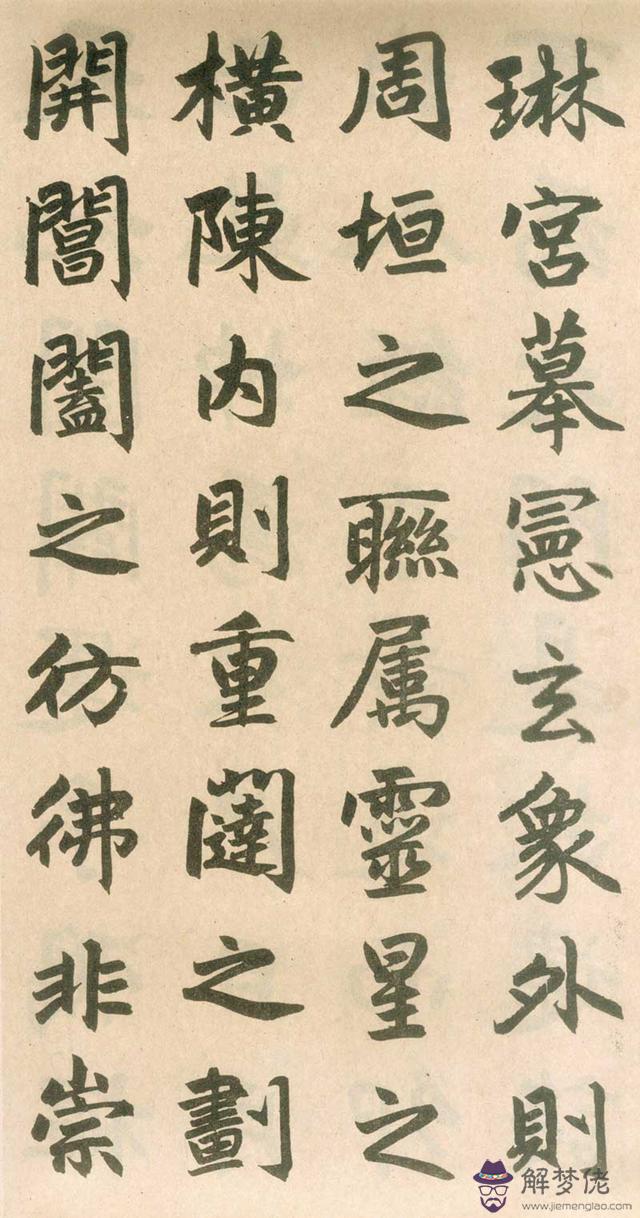 琳宮摹憲玄象外則
周垣之聯属靈星之
橫陳内則重闥之劃
開閶闔之彷彿非崇
解梦佬
www.jiemenglao.com